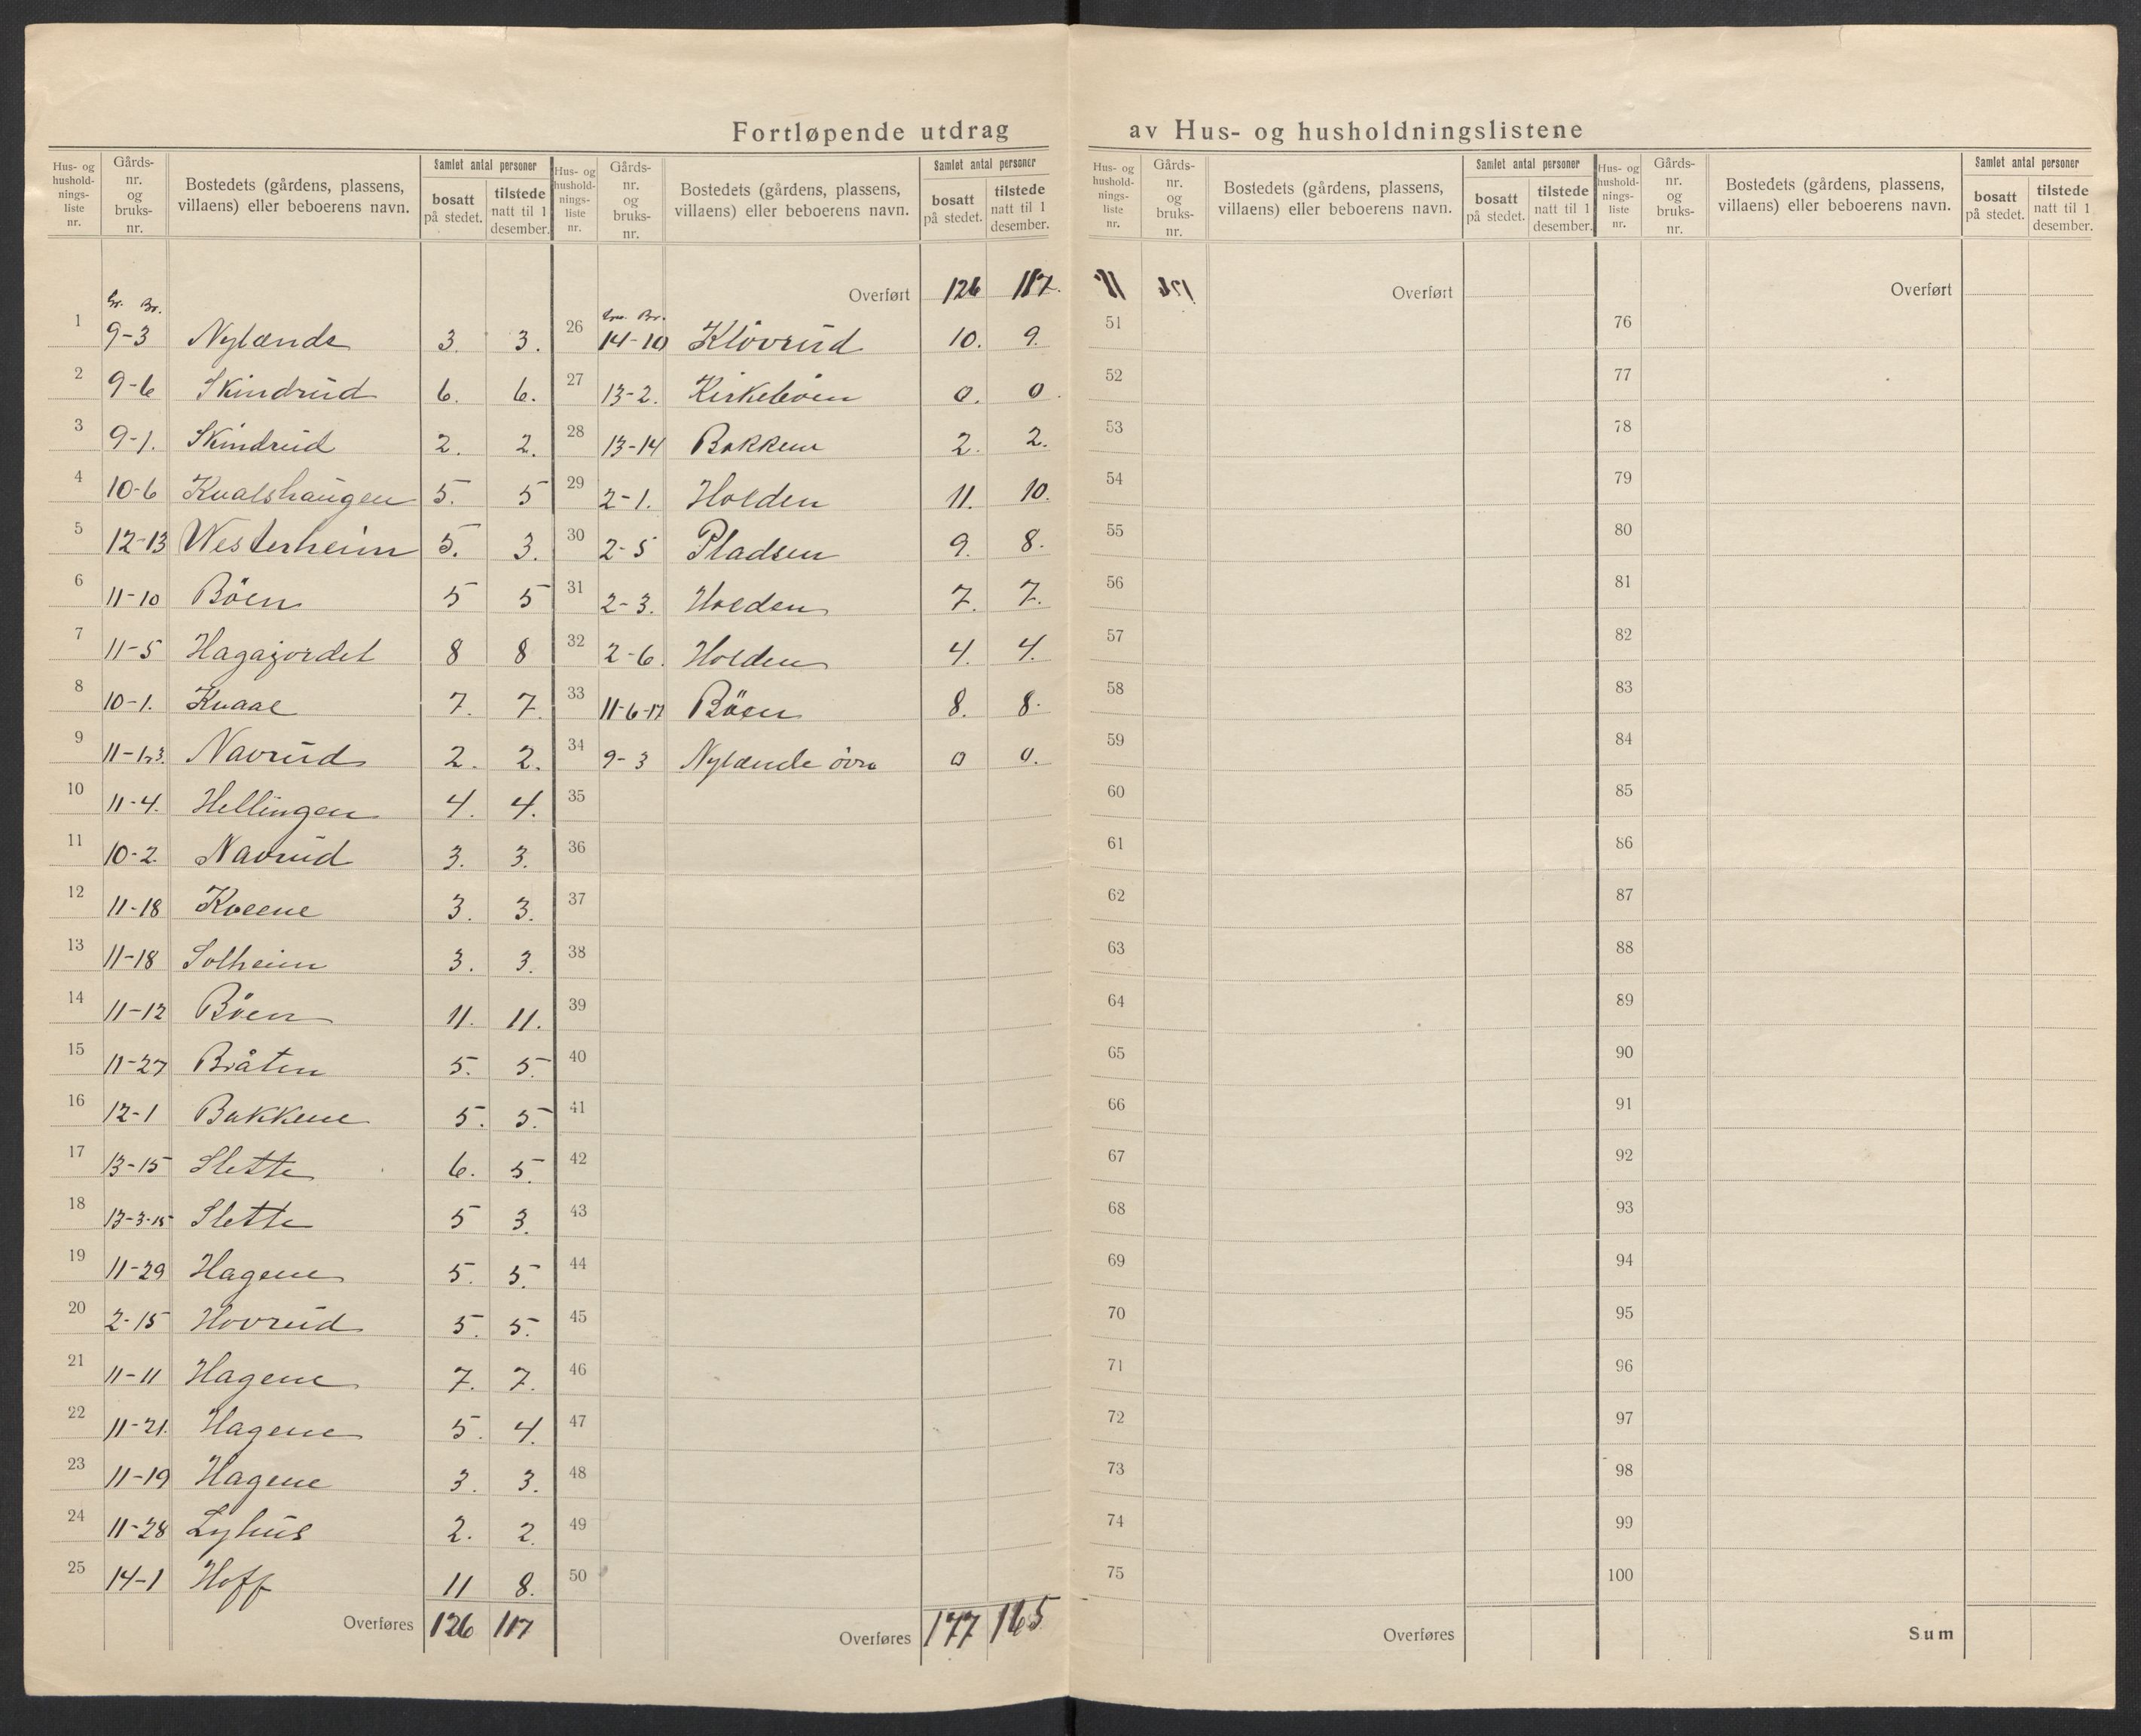 Fortløpende utdrag av Hus- og husholdningslistene
Hus- og husholdnings-liste nr. | Gårds-nr. og bruks-nr. | Bostedets (gårdens, plassens, villaens) eller beboerens navn. | Samlet antal personer bosatt på stedet. | tilstede natt til 1 desember.
Gr. Br.
1 9-3 Nylænde 3. 3.
2 9-6 Skindrud 6. 6.
3 9-1. Skindrud 2. 2.
4 10-6 Kvalshaugen 5. 5
5 12-13 Westerheim 5. 3.
6 11-10 Böen 5 5
7 11-5 Hagajordet 8 8
8 10-1. Kvaal 7. 7.
9 11-1,3. Navrud 2. 2.
10 11-4. Hellingen 4. 4.
11 10-2 Navrud 3. 3.
12 11-18 Kveene 3. 3.
13 11-18 Solheim 3. 3.
14 11-12 Böen 11. 11.
15 11-27 Bråten 5. 5.
16 12-1 Bakkene 5. 5.
17 13-15 Slette 6. 5.
18 13-3-15 Slette 5 3.
19 11-29 Hagene 5. 5.
20 2-15 Hovrud 5. 5.
21 11-11 Hagene 7. 7.
22 11-21. Hagene 5. 4.
23 11-19 Hagene 3. 3.
24 11-28 Lyhus 2. 2.
25 14-1 Hoff 11 8.
Overføres 126 117
Hus- og husholdnings-liste nr. | Gårds-nr. og bruks-nr. | Bostedets (gårdens, plassens, villaens) eller beboerens navn. | Samlet antal personer bosatt på stedet. | tilstede natt til 1 desember.
Overført 126 117.
Gr. Br.
26 14-10 Klövrud 10. 9.
27 13-2. Kirkeböen 0. 0.
28 13-14 Bakken 2. 2.
29 2-1. Holden 11. 10.
30 2-5 Pladsen 9. 8.
31 2-3. Holden 7. 7.
32 2-6. Holden 4. 4.
33 11-6-17 Böen 8. 8.
34 9-3 Nylænde övre 0 0.
35
36
37
38
39
40
41
42
43
44
45
46
47
48
49
50
Overføres 177 165
Hus- og husholdnings-liste nr. | Gårds-nr. og bruks-nr. | Bostedets (gårdens, plassens, villaens) eller beboerens navn. | Samlet antal personer bosatt på stedet. | tilstede natt til 1 desember.
Overført
51
52
53
54
55
56
57
58
59
60
61
62
63
64
65
66
67
68
69
70
71
72
73
74
75
Overføres
Hus- og husholdnings-liste nr. | Gårds-nr. og bruks-nr. | Bostedets (gårdens, plassens, villaens) eller beboerens navn. | Samlet antal personer bosatt på stedet. | tilstede natt til 1 desember.
Overført
76
77
78
79
80
81
82
83
84
85
86
87
88
89
90
91
92
93
94
95
96
97
98
99
100
Sum